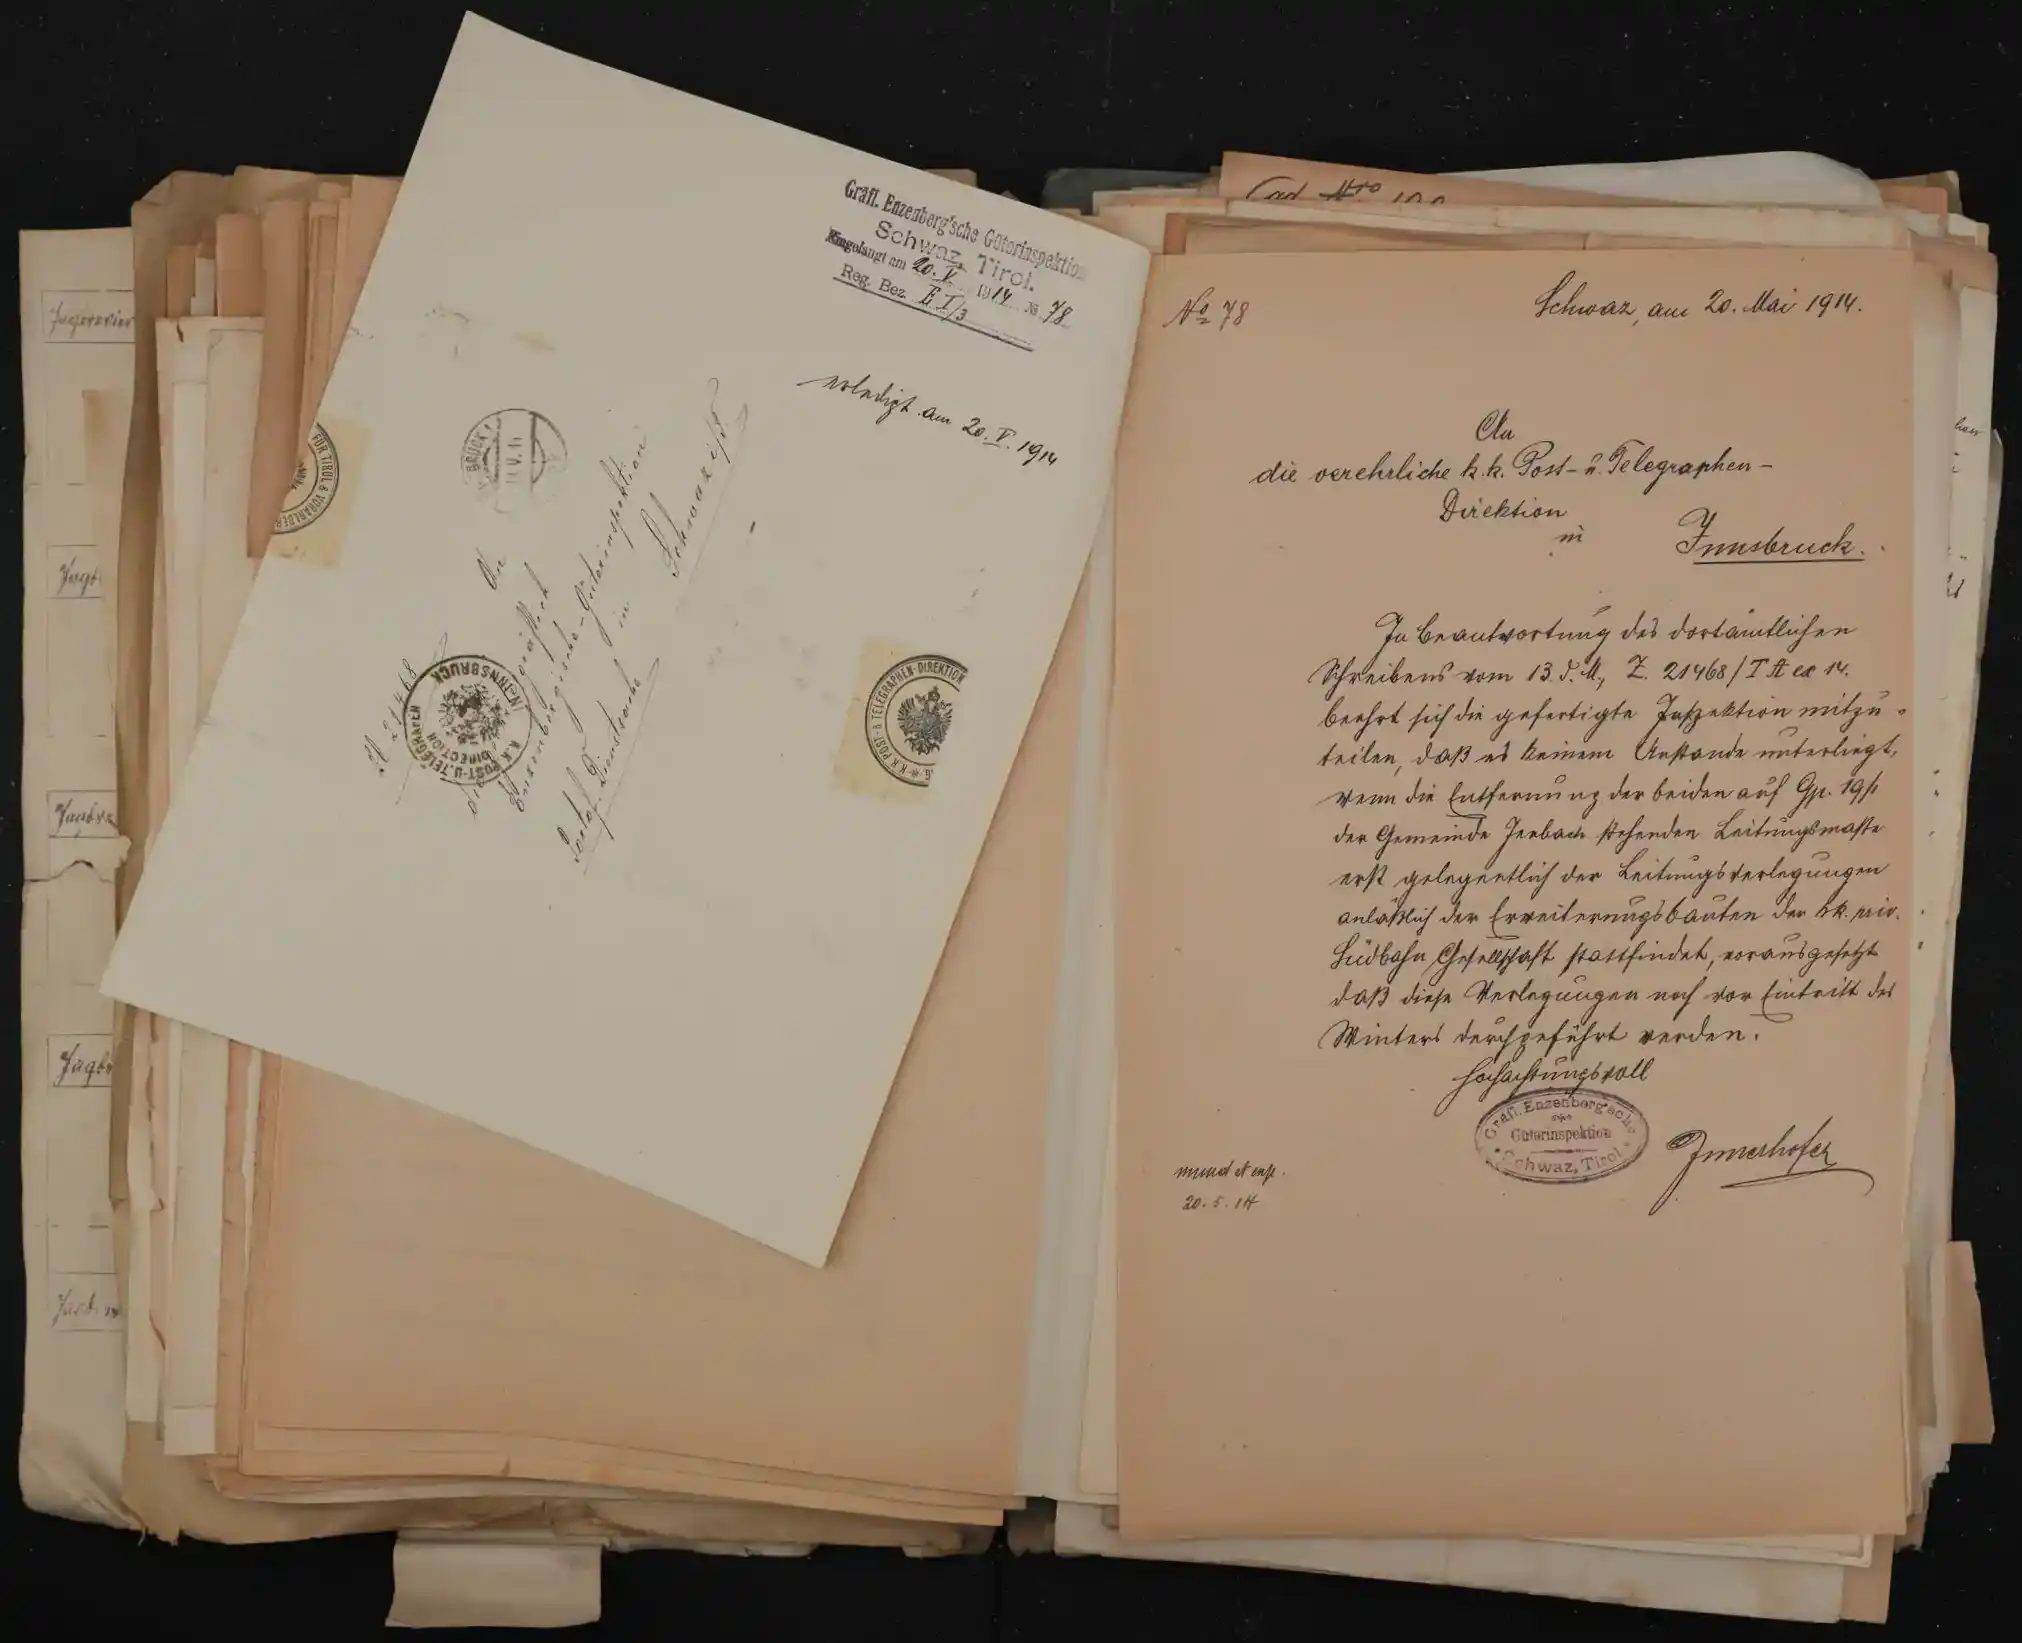 Gräfl. Enzenberg'sche Güterinspektion
Schwaz, Tirol.
Eingelangt am 20. V. 1914 № 78
Reg. Bez. E I/3
erledigt am 20. V. 1914
Z 21468
An
die gräflich
Enzenbergische-Güterinspektion
in
Schwaz
Portof. Dienstsache
K.K. POST-U. TELEGRAFEN DIRECTION IN INNSBRUCK
BRUCK 1
FÜR TIROL & VORARLBE
K.K. POST- & TELEGRAPHEN-DIREKTION
Jagdrevier
Cad. Nro 100
No 78
Schwaz, am 20. Mai 1914.
An
die verehrliche k.k. Post- u. Telegraphen-
Direktion
in
Innsbruck.
In Beantwortung des dortämtlichen
Schreibens vom 13. d. M., Z. 21468/ ex 14.
beehrt sich die gefertigte Inspektion mitzu-
teilen, daß es keinem Anstande unterliegt,
wenn die Entfernung der beiden auf Gp. 19/1
der Gemeinde Jenbach stehenden Leitungsmaste
erst gelegentlich der Leitungsverlegungen
anläßlich der Erweiterungsbauten der kk. priv.
Südbahn Gesellschaft stattfindet, vorausgesetzt
daß diese Verlegungen noch vor Eintritt des
Winters durchgeführt werden.
Hochachtungsvoll
Gräfl. Enzenberg'sche
Güterinspektion
Schwaz, Tirol
Innerhofer
mund et exp.
20. 5. 14